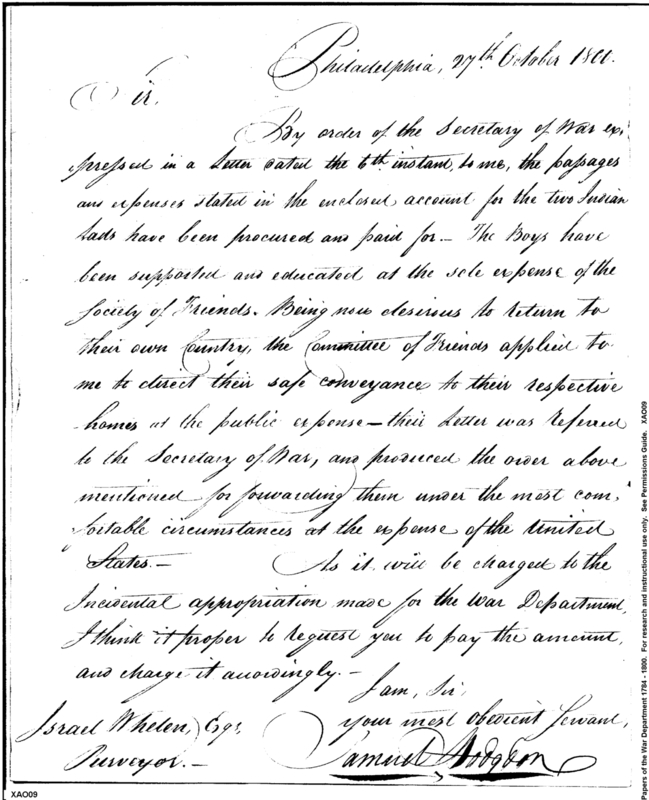 Philadelphia, 27th October 1800.
Sir,
By order of the Secretary of War ex,
pressed in a Letter dated the 6th instant, to me, the passages
and expenses stated in the enclosed account for the two Indian
Lads have been procured and paid for — The Boys have
been supported and educated at the sole expense of the
Society of Friends. Being now desirous to return to
their own Country, the Committee of Friends applied to
me to direct their safe conveyance to their respective
homes at the public expense — their Letter was referred
to the Secretary of War, and produced the order above
mentioned for forwarding them under the most com,
fortable circumstances at the expense of the United
States. — As it will be charged to the
Incidental appropriation made for the War Department,
I think it proper to request you to pay the amount,
and charge it accordingly. —
I am, Sir,
your most obedient Servant,
Israel Whelen, Esqr,
Purveyor. —
Samuel Hodgdon
XAO09
Papers of the War Department 1784 - 1800. For research and instructional use only. See Permissions Guide. XAO09